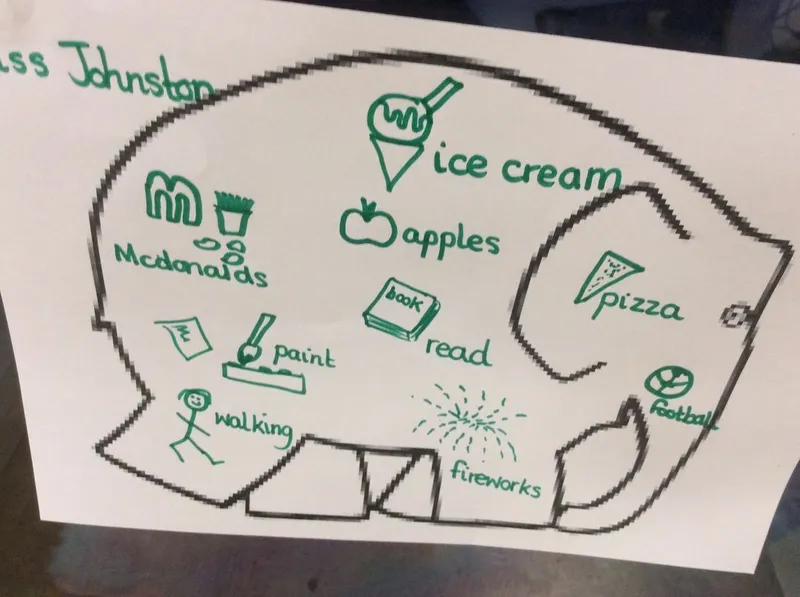 iss Johnston
ice cream
apples
Mcdonalds
pizza
book
read
paint
football
walking
fireworks